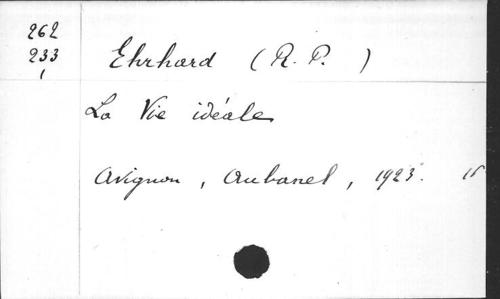 262
233
Ehrhard (R. P. )
La Vie idéale
Avignon, Aubanel, 1923.